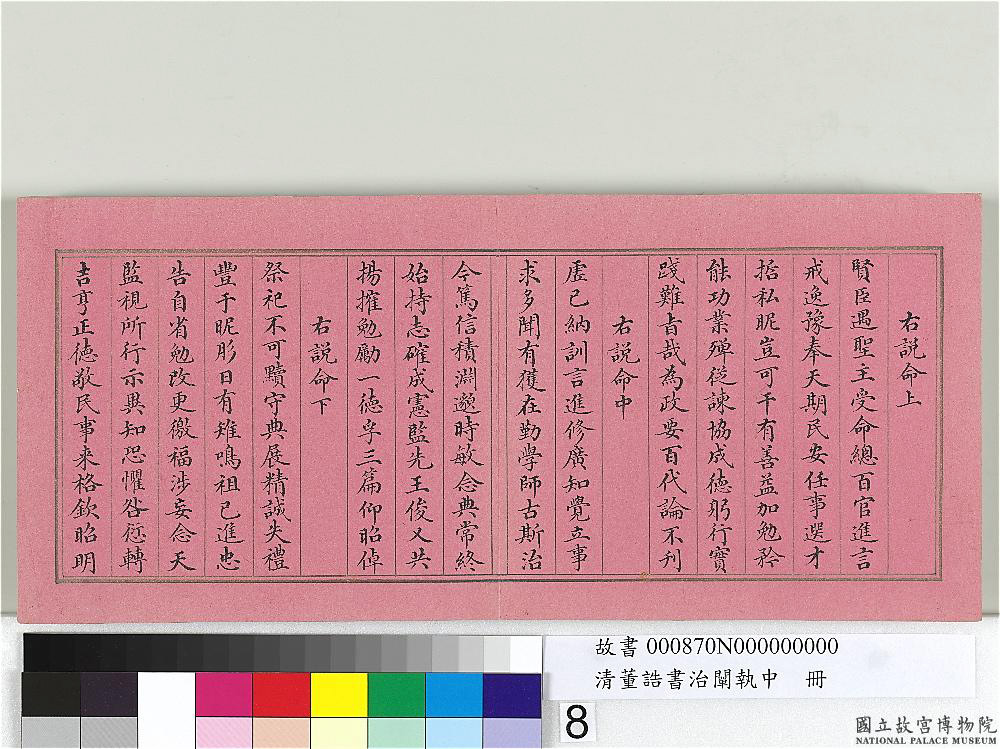 右說命上
賢臣遇聖主受命總百官進言
戒逸豫奉天期民安任事選才
捂私昵豈可干有善益加勉矜
能功業殫從諫協成德躬行實
踐難旨哉為政要百代論不刊
右說命中
虛己納訓言進修廣知覺立事
求多聞有獲在勤學師古斯治
今篤信積淵邈時敏念典常終
始持志確成憲監先王俊乂共
揚搉勉勵一德孚三篇仰昭倬
右說命下
祭祀不可黷守典展精誠失禮
豐于昵肜日有雉鳴祖己進忠
告自省勉改更徼福涉妄念天
監視所行示異知恐懼咎愆轉
吉亨正德敬民事来格欽昭明
故書 000870N000000000
清董誥書治闡執中 冊
8
國立故宮博物院
NATIONAL PALACE MUSEUM